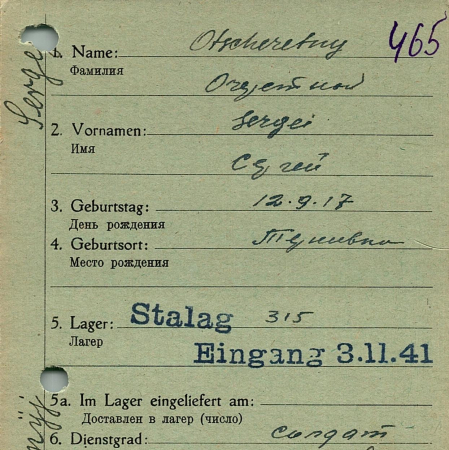 465
1. Name: Otscheretny
Фамилия
2. Vornamen: Sergei
Имя Сергей
3. Geburtstag: 12.9.17
День рождения
4. Geburtsort:
Место рождения
5. Lager: Stalag 315
Лагер
Eingang 3.11.41
5a. Im Lager eingeliefert am:
Доставлен в лагер (число)
6. Dienstgrad: солдат